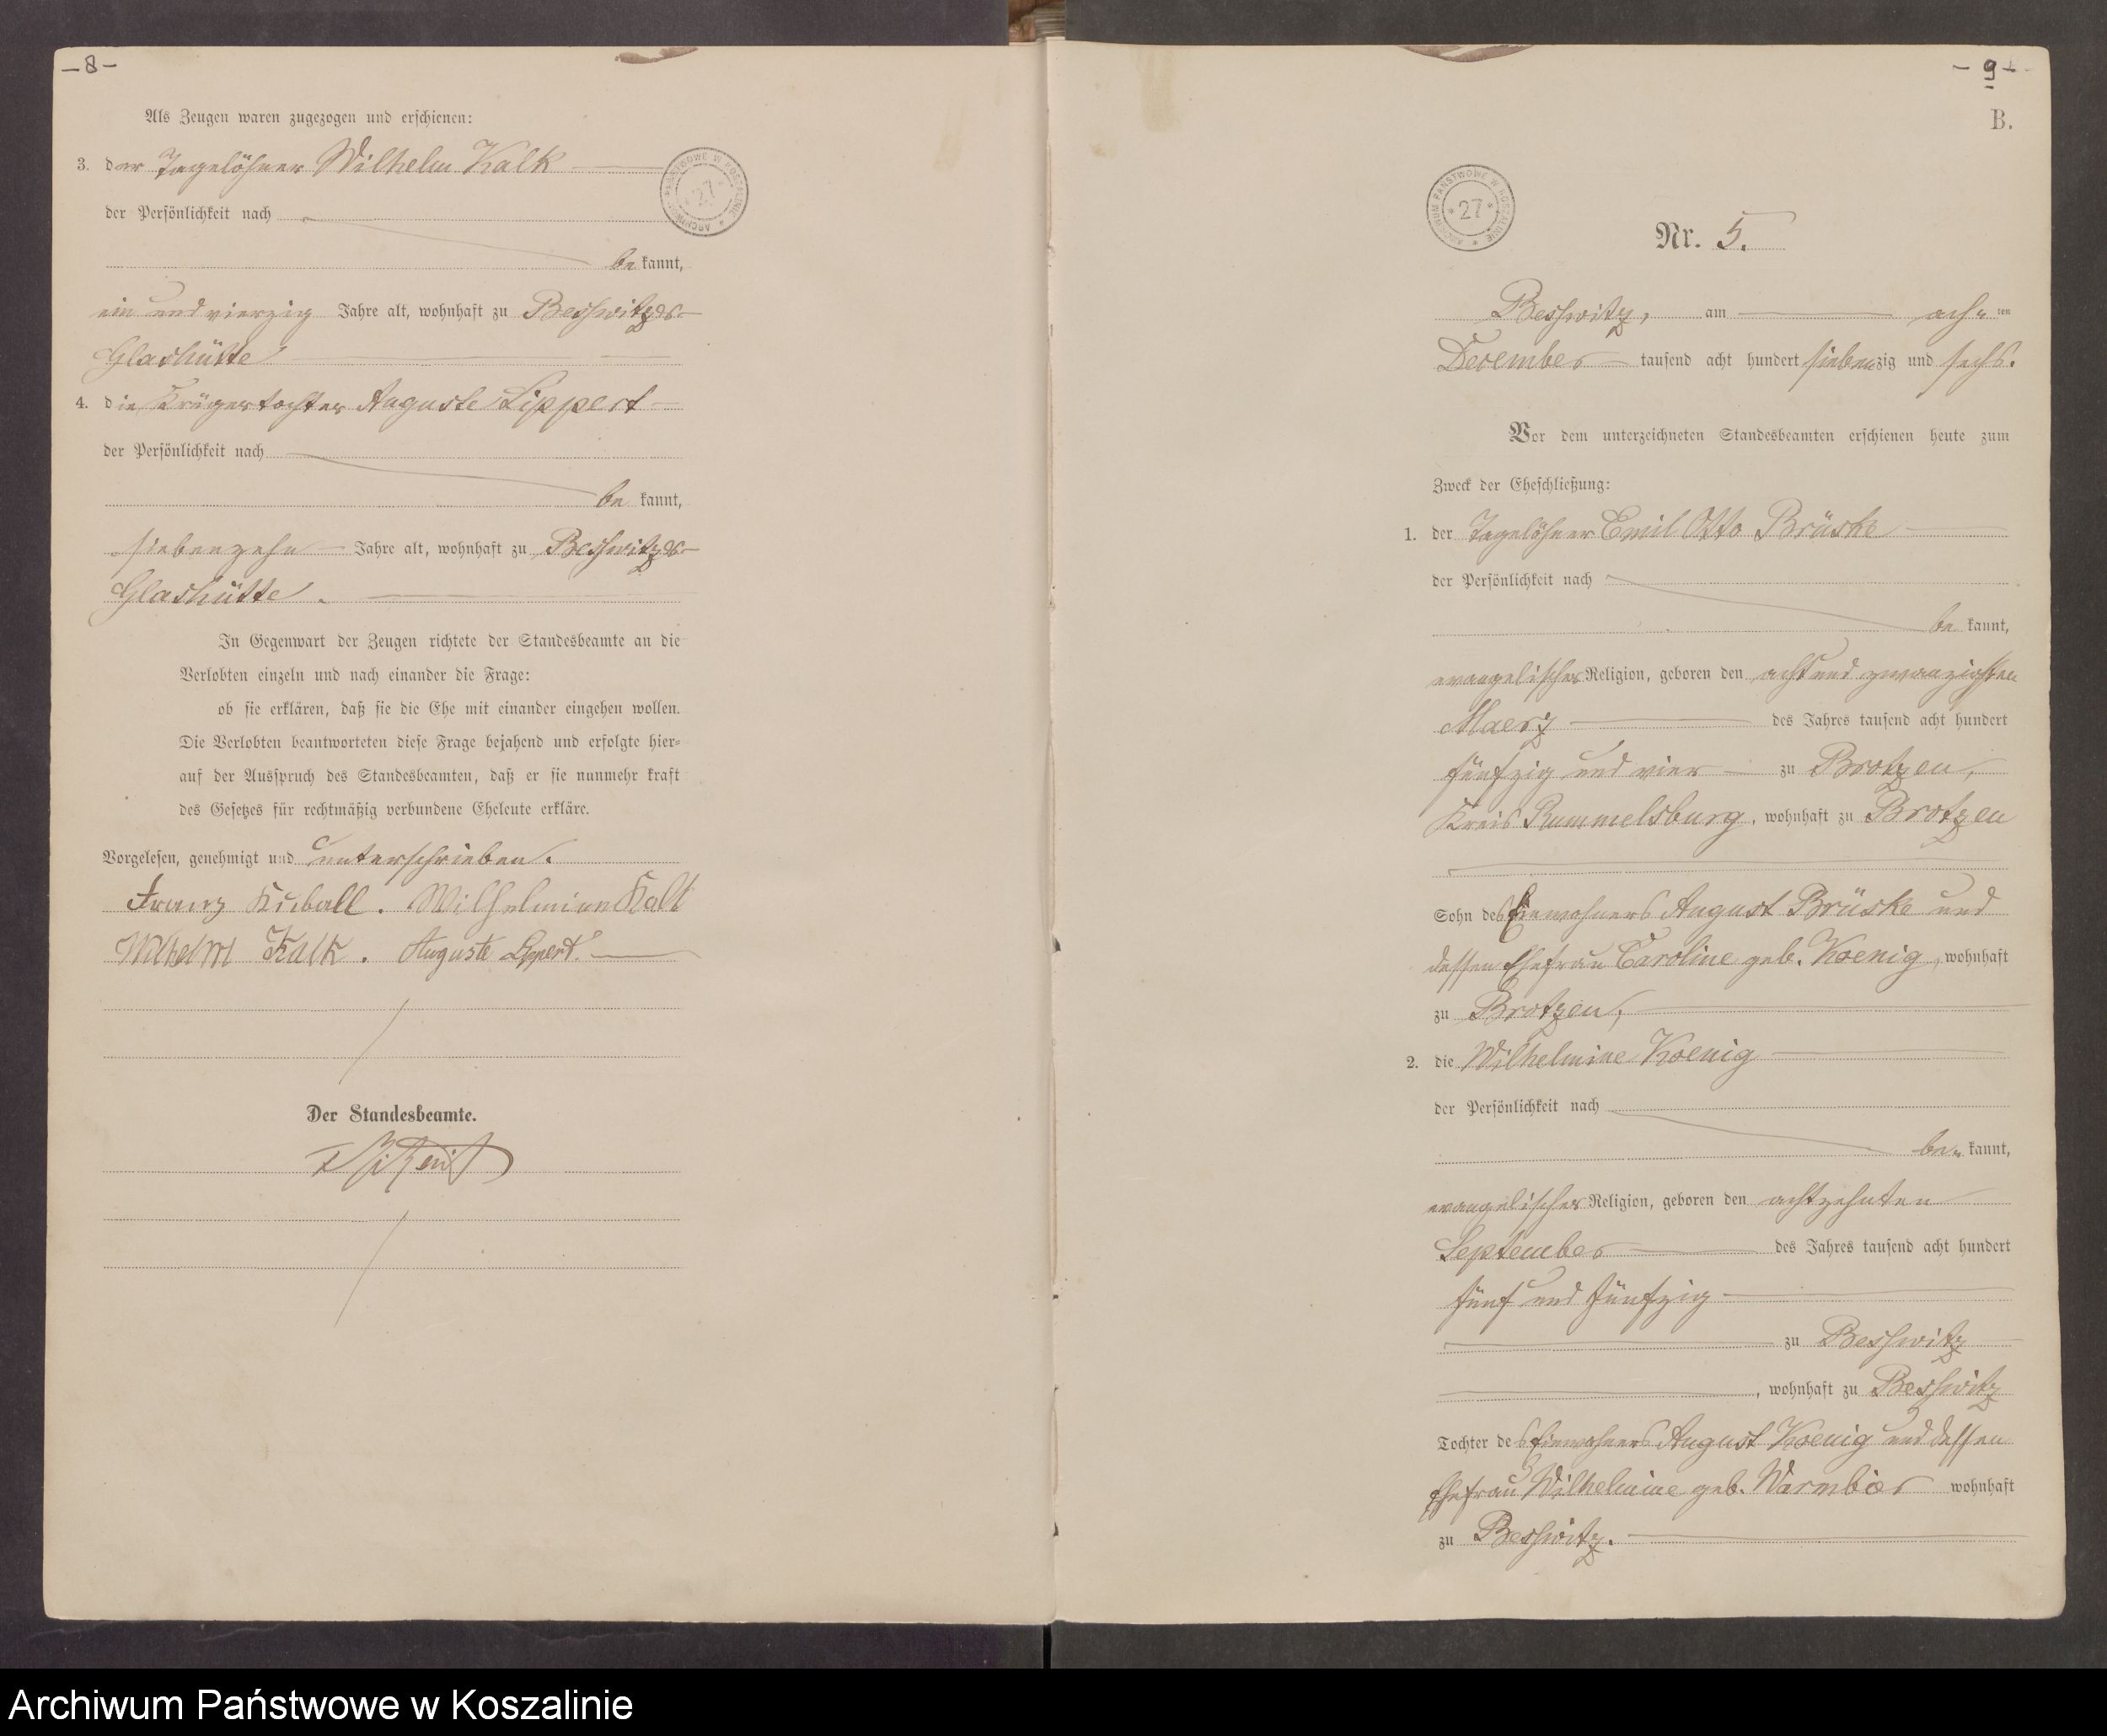 – 8 –
Als Zeugen waren zugezogen und erschienen:
3. der Tagelöhner Wilhelm Kalk
der Persönlichkeit nach
be kannt,
ein und vierzig Jahre alt, wohnhaft zu Besswitzer-
Glashütte
4. die Krügertochter Auguste Lippert
der Persönlichkeit nach
be kannt,
siebenzehn Jahre alt, wohnhaft zu Besswitzer-
Glashütte.
In Gegenwart der Zeugen richtete der Standesbeamte an die
Verlobten einzeln und nach einander die Frage:
ob sie erklären, daß sie die Ehe mit einander eingehen wollen.
Die Verlobten beantworteten diese Frage bejahend und erfolgte hier-
auf der Ausspruch des Standesbeamten, daß er sie nunmehr kraft
des Gesetzes für rechtmäßig verbundene Eheleute erkläre.
Vorgelesen, genehmigt und unterschrieben.
Franz Kuball. Wilhelmine Kalk
Wilhelm Kalk. Auguste Lippert.
Der Standesbeamte.
ARCHIWUM PAŃSTWOWE W KOSZALINIE * 27 *
– 9 –
B.
ARCHIWUM PAŃSTWOWE W KOSZALINIE * 27 *
Nr. 5.
Besswitz, am ach ten
December tausend acht hundert siebenzig und sechs.
Vor dem unterzeichneten Standesbeamten erschienen heute zum
Zweck der Eheschließung:
1. der Tagelöhner Emil Otto Brüske
der Persönlichkeit nach
be kannt,
evangelischer Religion, geboren den acht und zwanzigsten
Maerz des Jahres tausend acht hundert
fünfzig und vier zu Brotzen,
Kreis Rummelsburg, wohnhaft zu Brotzen
Sohn des Einwohners August Brüske und
dessen Ehefrau Caroline geb. Koenig, wohnhaft
zu Brotzen,
2. die Wilhelmine Koenig
der Persönlichkeit nach
be kannt,
evangelischer Religion, geboren den achtzehnten
September des Jahres tausend acht hundert
fünf und fünfzig
zu Besswitz
, wohnhaft zu Besswitz
Tochter des Einwohners August Koenig und dessen
Ehefrau Wilhelmine geb. Warmbier wohnhaft
zu Besswitz.
Archiwum Państwowe w Koszalinie